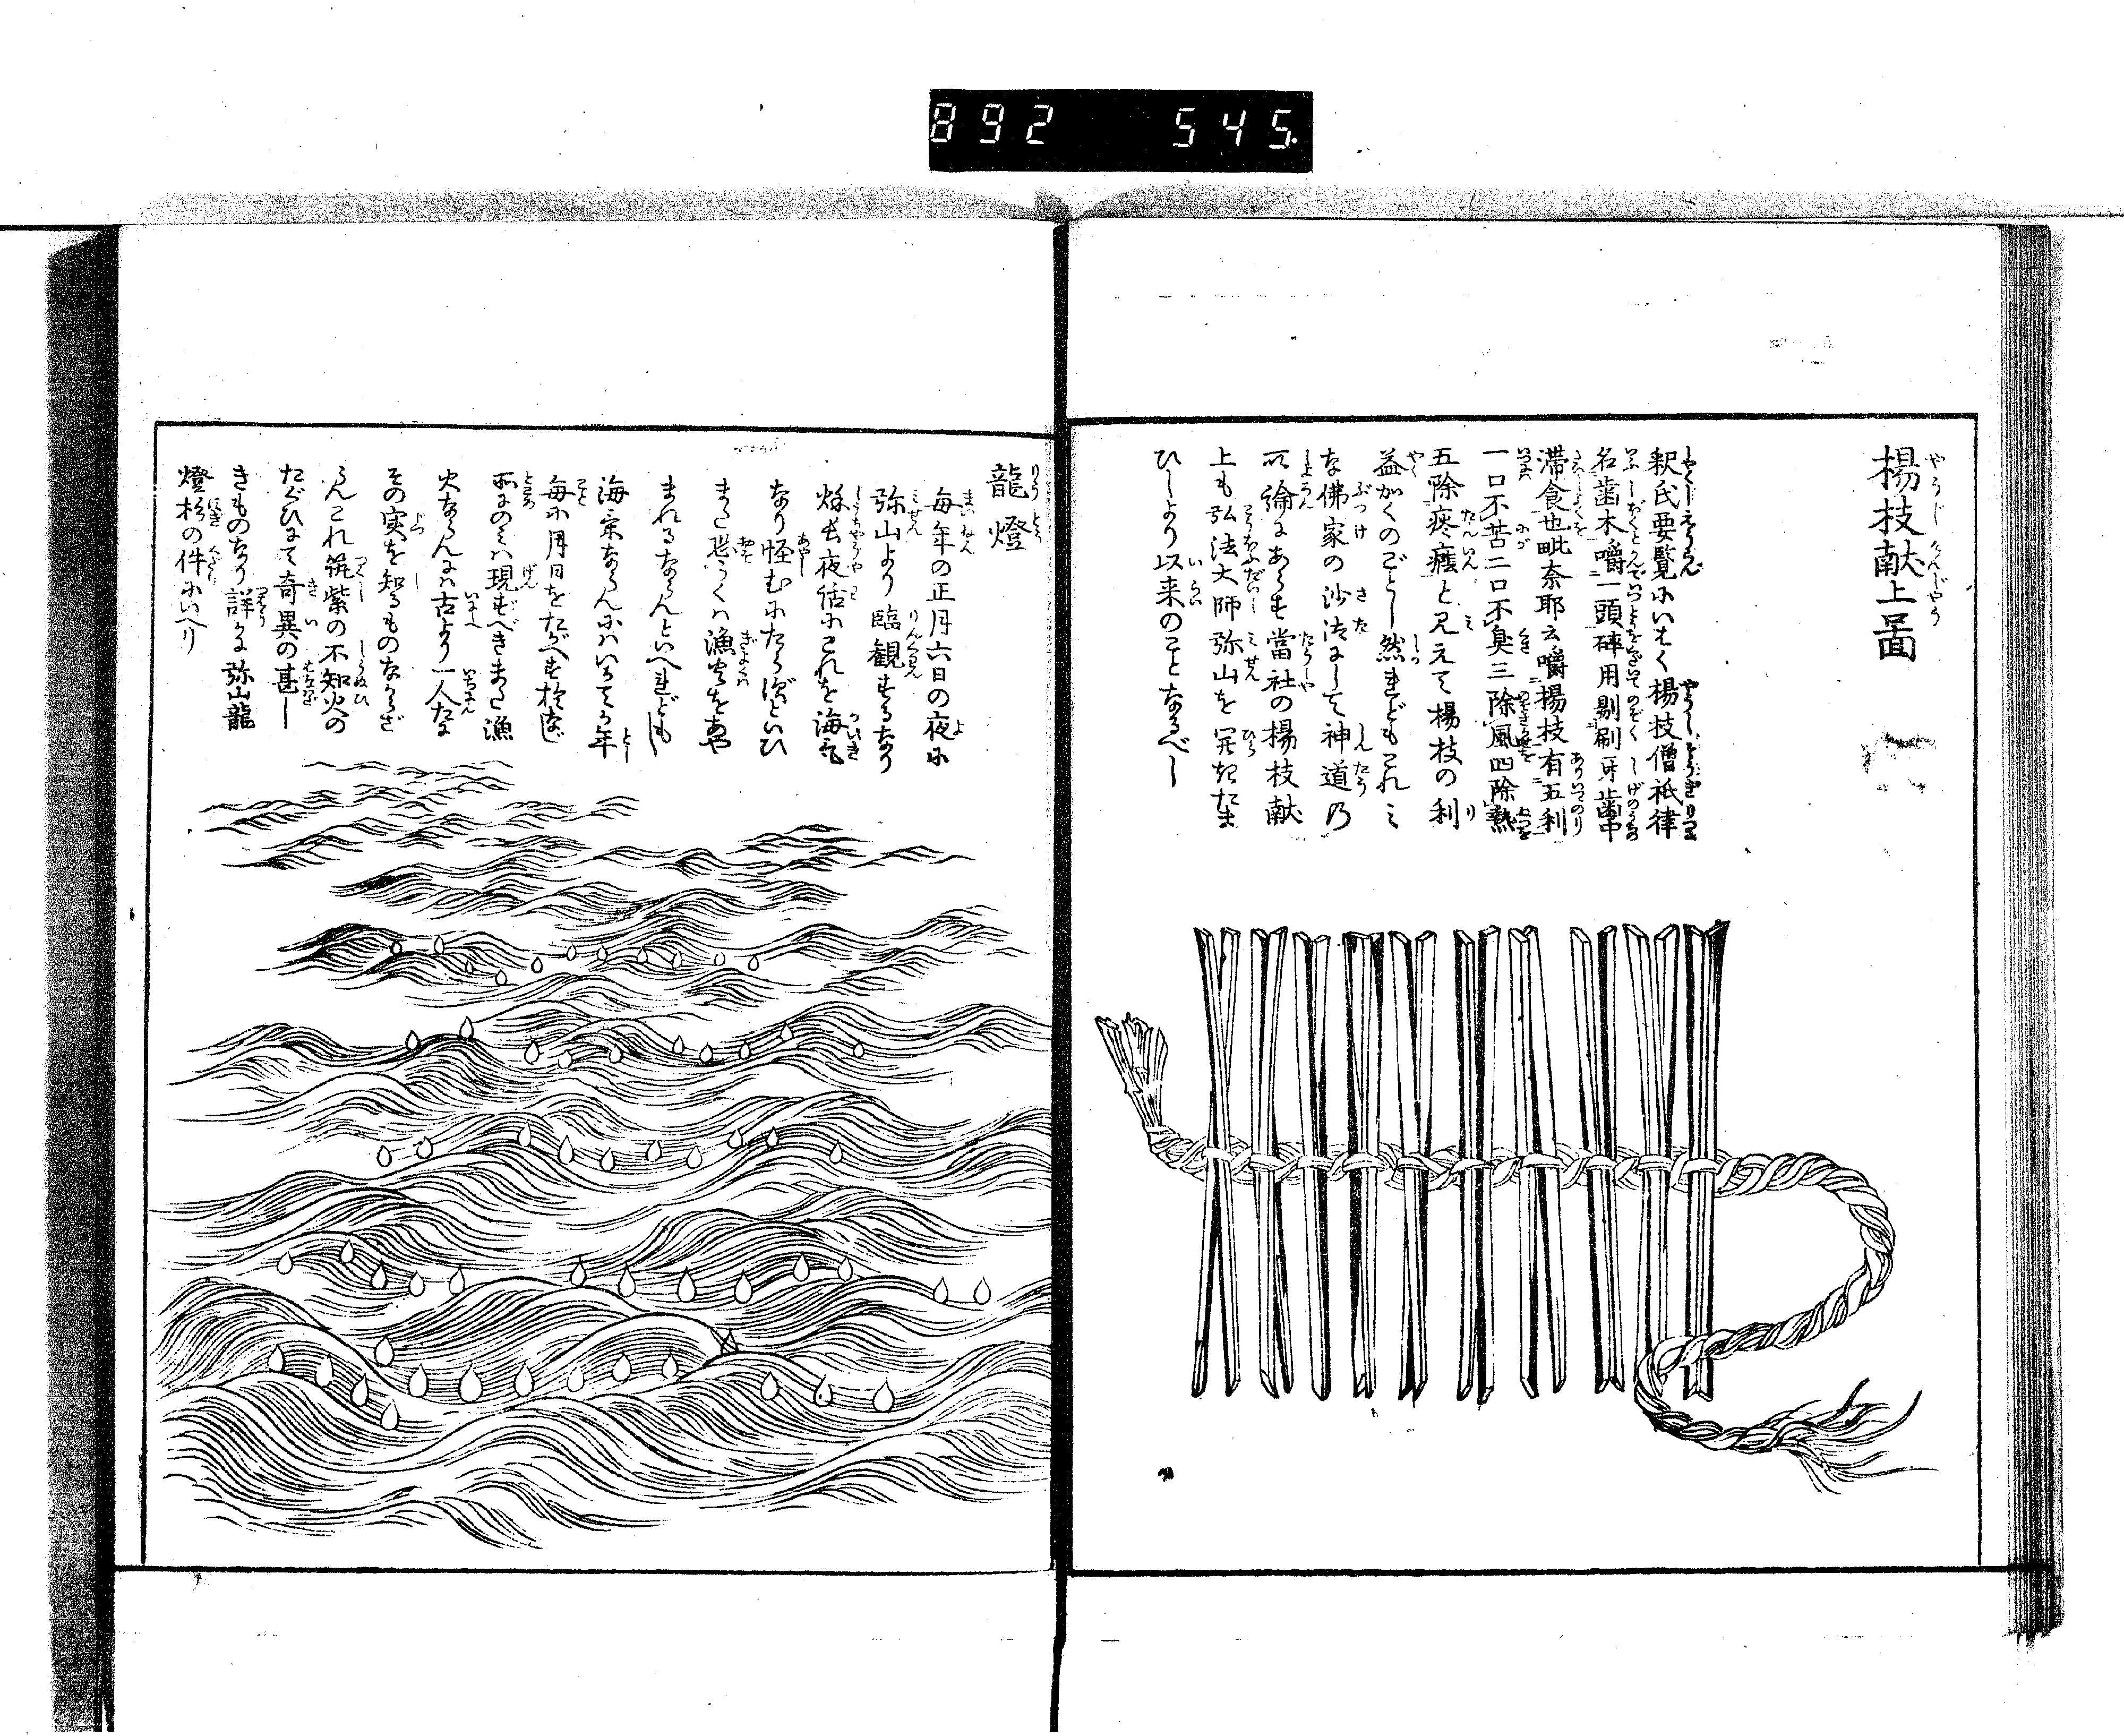 892 545.
楊枝献上圖
釈氏要覧にいはく楊枝僧祇律
名歯木嚼一頭碎用剔刷牙歯中
滞食也毗奈耶云嚼楊枝有五利
一口不苦二口不臭三除風四除熱
五除痰癊と見えて楊枝の利
益かくのごとし然れどもこれミ
な佛家の沙汰にして神道乃
所論にあらず當社の楊枝献
上も弘法大師弥山を開きたま
ひしより以来のことなるべし
龍燈
毎年の正月六日の夜に
弥山より臨観するなり
除夜にこれを海
なり怪むにたらずといひ
また漁火をあや
まれるならんといへれども
海気ならんにハいかでか年
毎に月日をたがへず
所にのミハ現ずべきまた漁
火ならんにハ古より一人だに
その実を知るものなからざ
らんこれ筑紫の不知火の
たぐひにて奇異の甚し
きものなり詳に弥山龍
燈杉の件にいへり